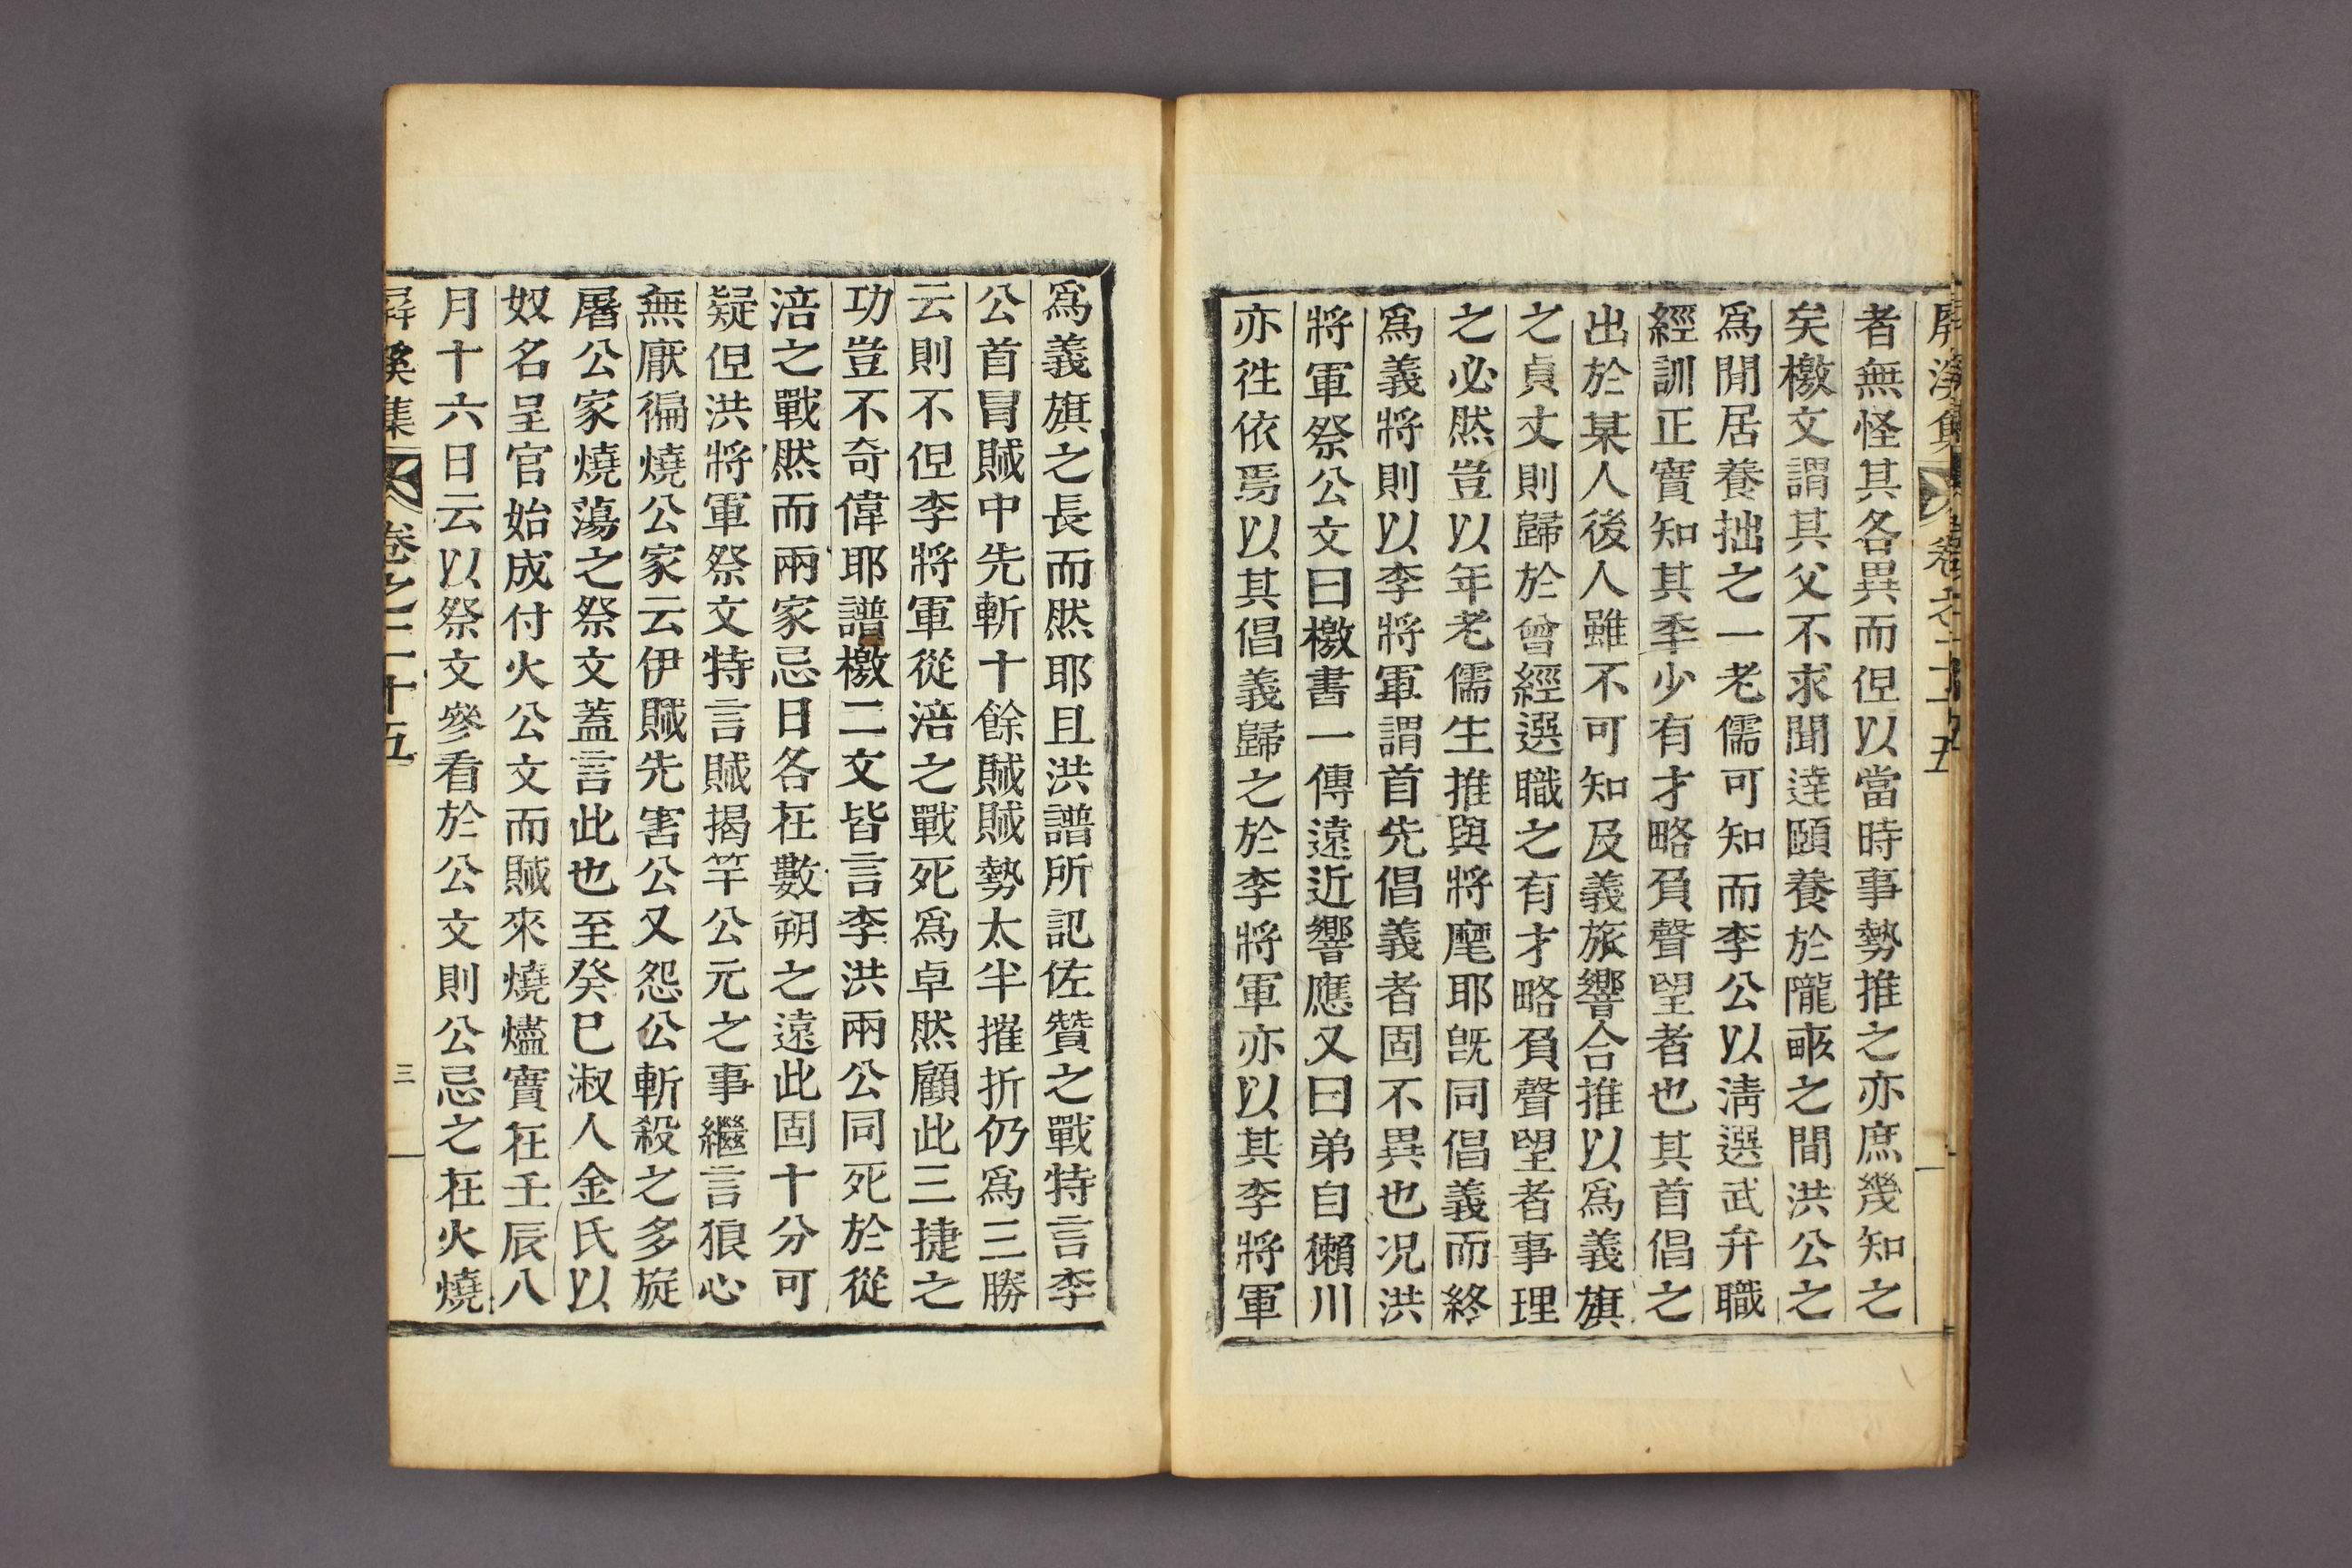 屛溪集 卷之二十五
者無怪其各異而但以當時事勢推之亦庶幾知之
矣檄文謂其父不求聞達頤養於隴畝之間洪公之
爲閒居養拙之一老儒可知而李公以淸選武弁職
經訓正實知其季少有才略負聲望者也其首倡之
出於某人後人雖不可知及義旅響合推以爲義旗
之貞丈則歸於曾經選職之有才略負聲望者事理
之必然豈以年老儒生推與將麾耶旣同倡義而終
爲義將則以李將軍謂首先倡義者固不異也况洪
將軍祭公文曰檄書一傳遠近響應又曰弟自獺川
亦徃依焉以其倡義歸之於李將軍亦以其李將軍
爲義旗之長而然耶且洪譜所記佐贊之戰特言李
公首冒賊中先斬十餘賊賊勢太半摧折仍爲三勝
云則不但李將軍從涪之戰死爲卓然顧此三捷之
功豈不奇偉耶譜檄二文皆言李洪兩公同死於從
涪之戰然而兩家忌日各在數朔之遠此固十分可
疑但洪將軍祭文特言賊揭竿公元之事繼言狼心
無厭徧燒公家云伊賊先害公又怨公斬殺之多旋
屠公家燒蕩之祭文蓋言此也至癸巳淑人金氏以
奴名呈官始成付火公文而賊來燒燼實在壬辰八
月十六日云以祭文參看於公文則公忌之在火燒
屛溪集 卷之二十五 三